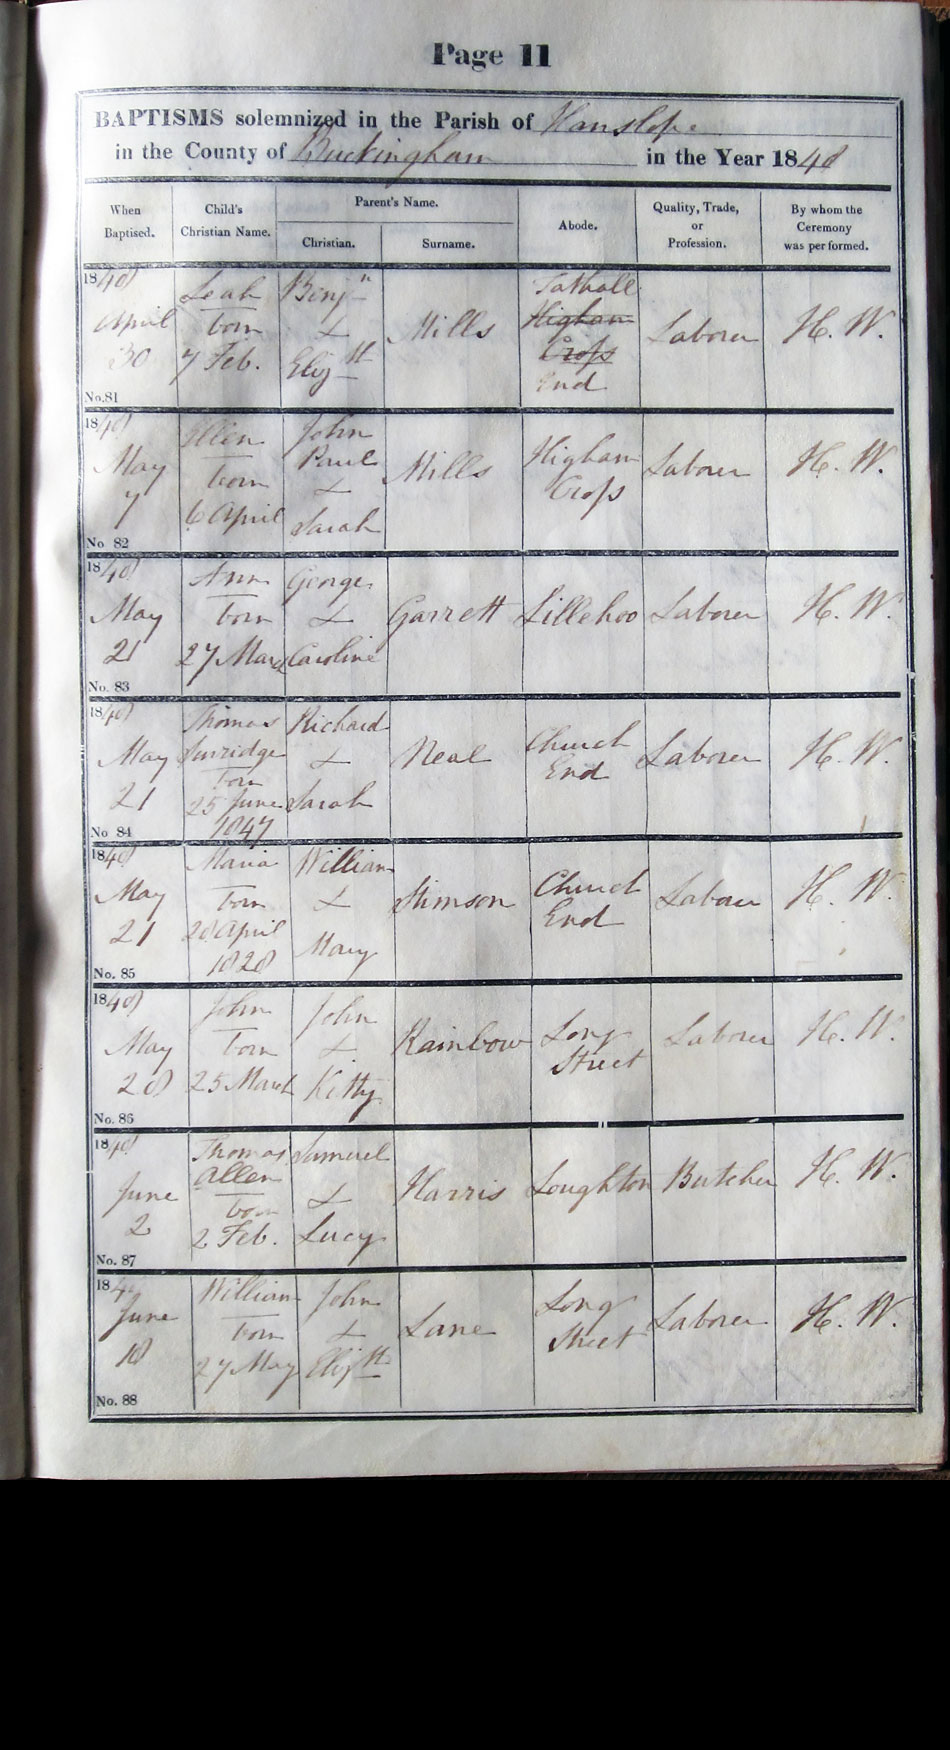 Page 11
BAPTISMS solemnized in the Parish of Hanslope
in the County of Buckingham in the Year 1848
When Baptised.
Child's Christian Name.
Parent's Name.
Christian.
Surname.
Abode.
Quality, Trade, or Profession.
By whom the Ceremony was performed.
1848
April
30
No. 81
Leah
born
7 Feb.
Benjn
&
Elizth
Mills
Tathall
Higham
Cross
End
Laborer
H. W.
1848
May
7
No. 82
Ellen
born
6 April
John
Paul
&
Sarah
Mills
Higham
Cross
Laborer
H. W.
1848
May
21
No. 83
Ann
born
27 March
George
&
Caroline
Garrett
Lillehoo
Laborer
H. W.
1848
May
21
No 84
Thomas
Surridge
born
25 June
1847
Richard
&
Sarah
Neal
Church
End
Laborer
H. W.
1848
May
21
No. 85
Maria
born
28 April
1828
William
&
Mary
Stimson
Church
End
Laborer
H. W.
1848
May
28
No. 86
John
born
25 March
John
&
Kitty
Rainbow
Long
Street
Laborer
H. W.
1848
June
2
No. 87
Thomas
Allen
born
2 Feb.
Samuel
&
Lucy
Harris
Loughton
Butcher
H. W.
184
June
18
No. 88
William
born
27 May
John
&
Elizth
Lane
Long
Street
Laborer
H. W.